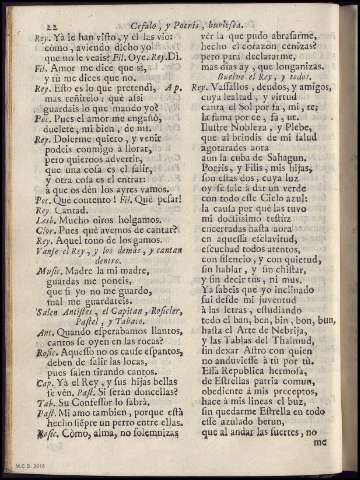 22 Cefalo, y Pocris, burlesca.
Rey. Ya le han visto, y el las viò:
còmo, aviendo dicho yo
que no le veais? Fil. Oye. Rey. Dì.
Fil. Amor me dice que sì,
y tù me dices que no.
Rey. Esto es lo que pretendì, Ap.
mas reñirelo: que assi
guardais lo que mando yo?
Poc. Pues el amor me engañò,
duelete, mi bien, de mi.
Rey. Dolerme quiero, y venir
podeis conmigo à llorar,
pero quieroos advertir,
que una cosa es el salir,
y otra cosa es el entrar:
à que os dèn los ayres vamos.
Poc. Què contento! Fil. Què pesar!
Rey. Cantad.
Lesb. Mucho oiros holgamos.
Clor. Pues què avemos de cantar?
Rey. Aquel tono de los gamos.
Vanse el Rey, y los demàs, y cantan
dentro.
Music. Madre la mi madre,
guardas me poneis,
que si yo no me guardo,
mal me guardareis.
Salen Antistes, el Capitan, Rosicler,
Pastel, y Tabaco.
Ant. Quando esperabamos llantos,
cantos se oyen en las rocas?
Rosic. Aquesso no os cause espantos,
deben de salir las locas,
pues salen tirando cantos.
Cap. Yà el Rey, y sus hijas bellas
se vèn. Past. Si seràn doncellas?
Tab. Su Confessor lo sabrà.
Past. Mi amo tambien, porque està
hecho siẽpre un perro entre ellas.
Rosic. Còmo, alma, no solemnizas
vèr la que pudo abrasarme,
hecho el corazon cenizas?
pero para declararme,
mas dias ay, que longanizas.
Buelve el Rey, y todos.
Rey. Vassallos, deudos, y amigos,
cuya lealtad, y virtud
canta el Sol por fa, mi, re;
la fama por ce, fa, ut.
Ilustre Nobleza, y Plebe,
que al brindis de mi salud
agotarades aora
aun la cuba de Sahagun.
Pocris, y Filis, mis hijas,
son estas dos, cuya luz
oy se sale à dar un verde
con todo esse Cielo azul:
la causa por que las tuvo
mi doctissimo testùz
encerradas hasta aora
en aquessa esclavitud,
escuchad todos atentos,
con silencio, y con quietud,
sin hablar, y sin chistar,
y sin decir tus, ni mus.
Yà sabeis que yo inclinado
fui desde mi juventud
à las letras, estudiando
todo el ban, ben, bin, bon, bun,
hasta el Arte de Nebrija,
y las Tablas del Thalmud,
sin dexar Astro con quien
no anduviesse à tù por tù.
Essa Republica hermosa,
de Estrellas patria comun,
obediente à mis preceptos,
hace à mis lineas el buz,
sin quedarme Estrella en todo
esse azulado betun,
que al andar las suertes, no
me
M.C.D. 2018